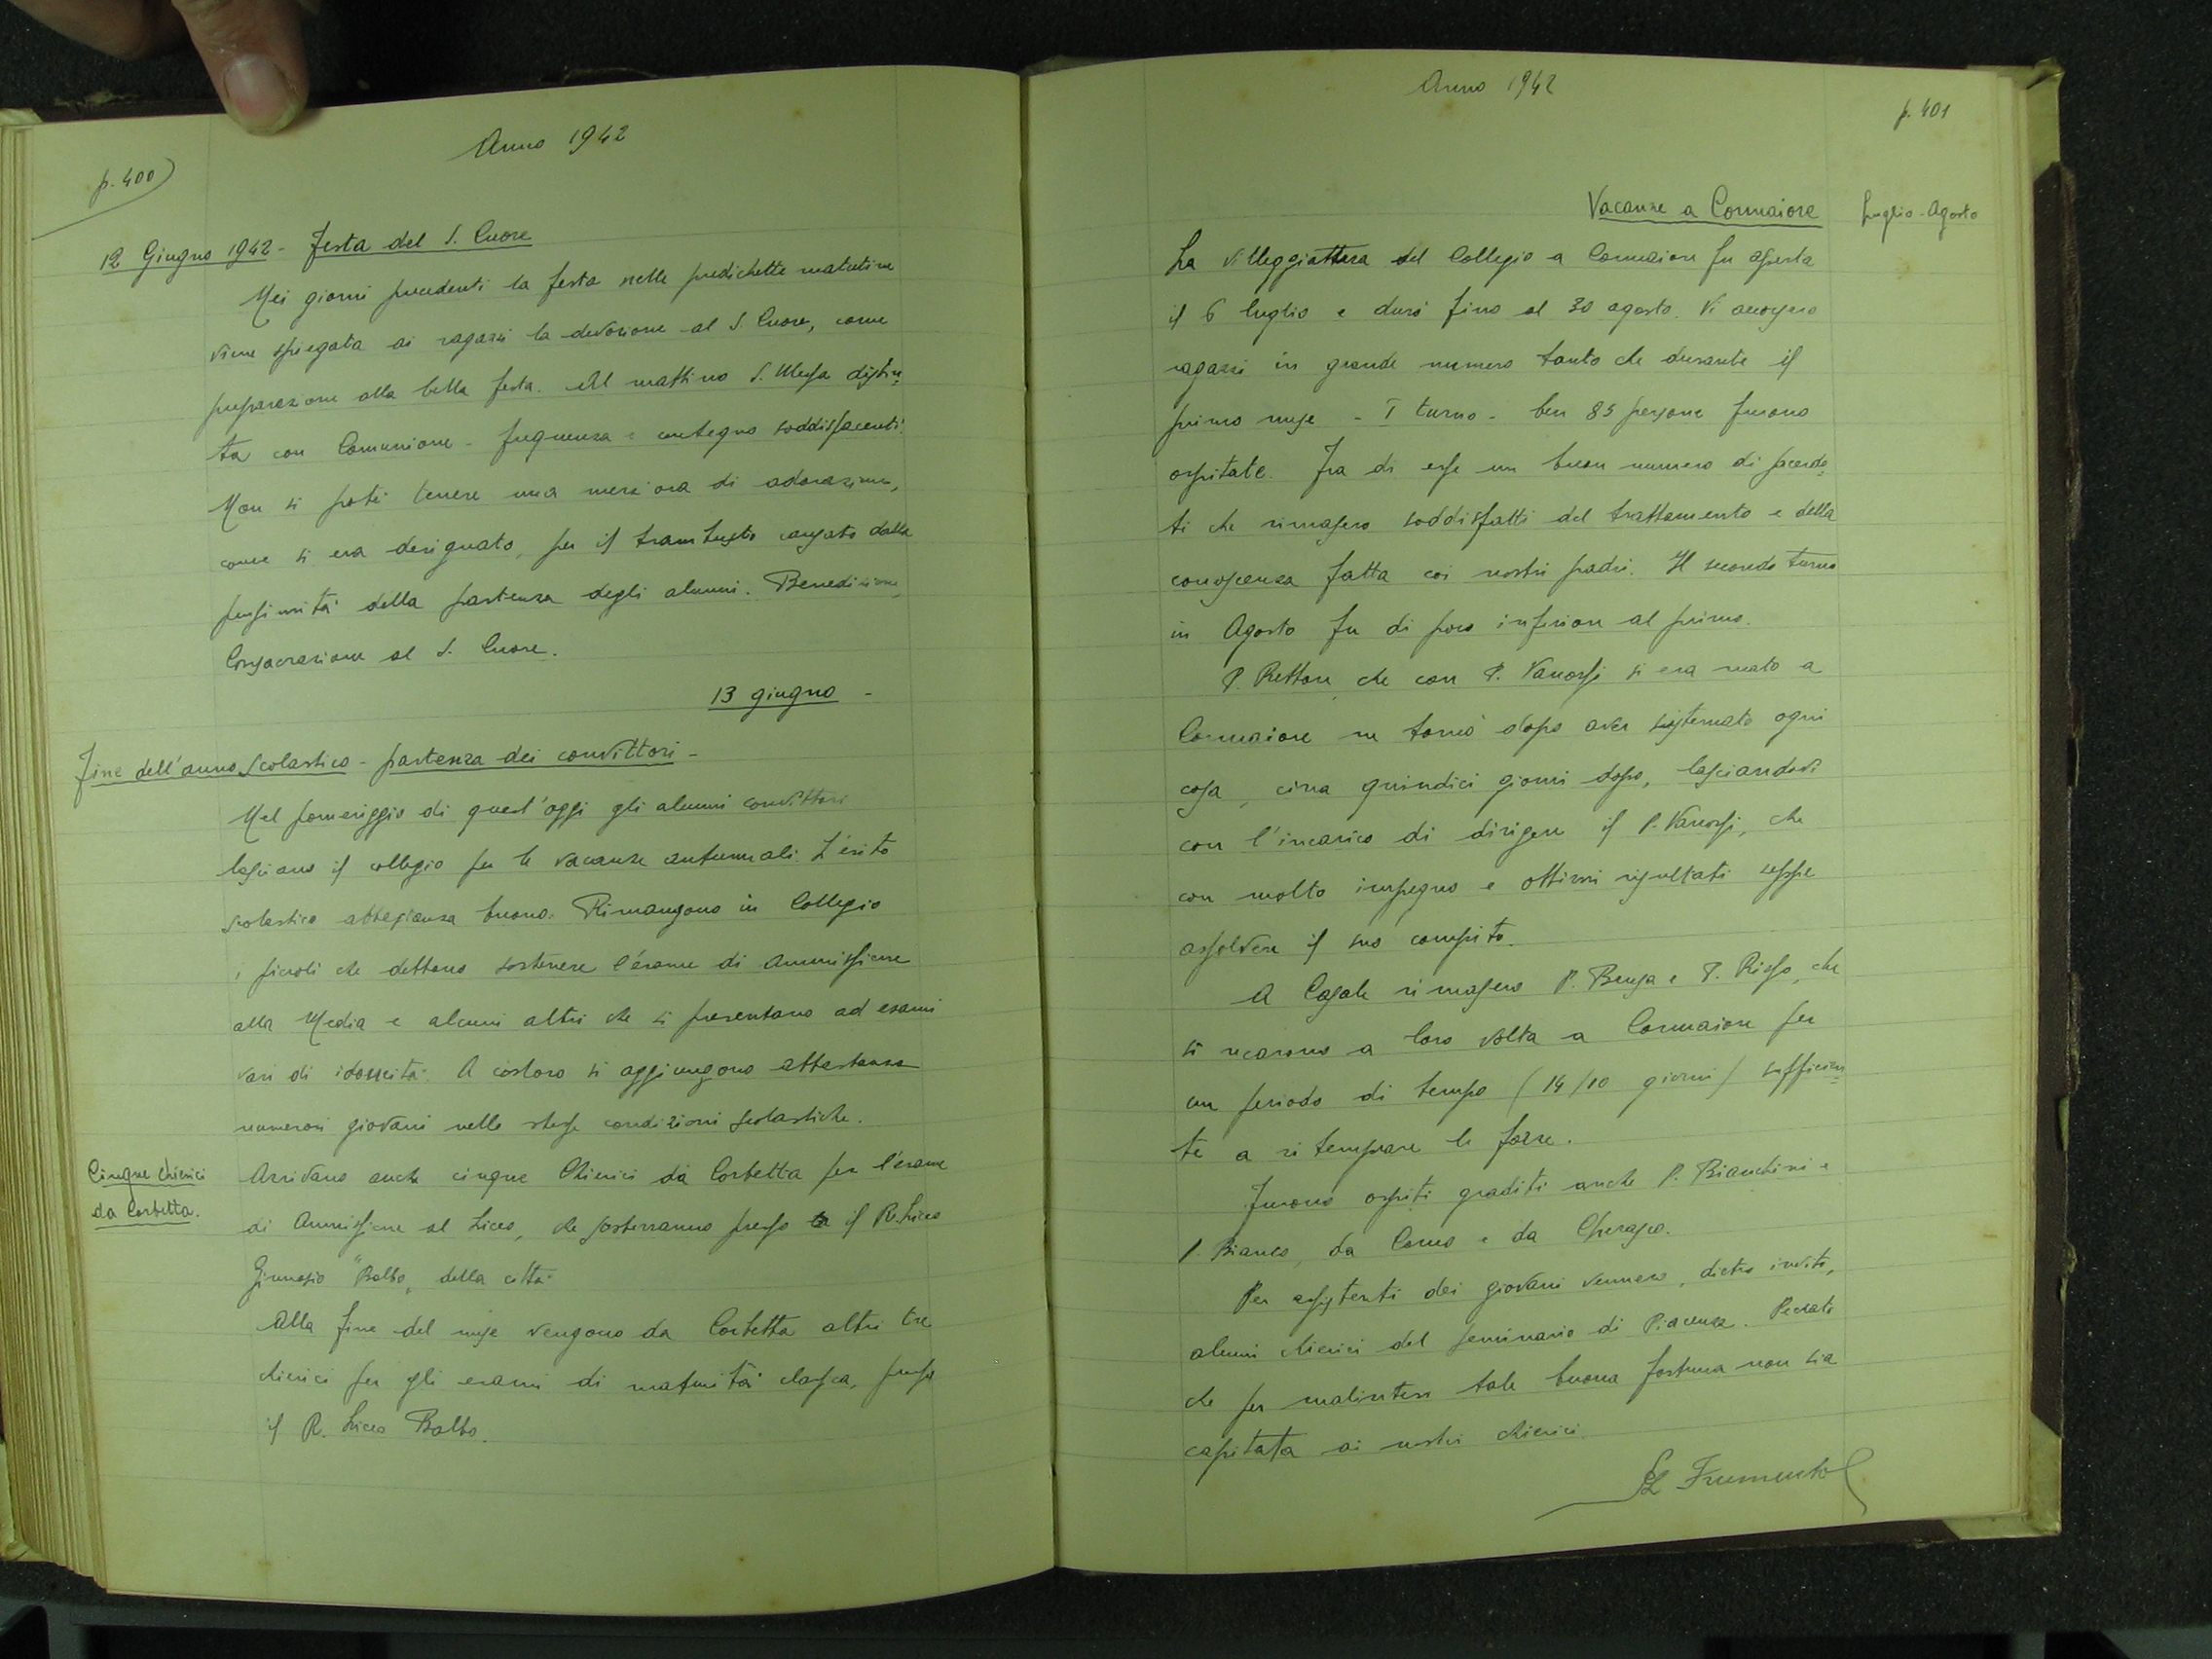 p. 400
Anno 1942
12 Giugno 1942 - Festa del S. Cuore
Nei giorni precedenti la festa nelle predichette matutine
viene spiegata ai ragazzi la devozione al S. Cuore, come
preparazione alla bella festa. Al mattino S. Messa distin=
ta con Comunione - frequenza e contegno soddisfacenti.
Non si potè tenere una mezz'ora di adorazione,
come si era designato, per il trambusto causato dalla
prossimità della partenza degli alunni. Benedizione,
Consacrazione al S. Cuore.
13 giugno -
Fine dell'anno scolastico - partenza dei convittori -
Nel pomeriggio di quest'oggi gli alunni convittori
lasciano il collegio per le vacanze autunnali. L'esito
scolastico abbastanza buono. Rimangono in Collegio
i piccoli che debbono sostenere l'esame di Ammissione
alla Media e alcuni altri che si presentano ad esami
vari di idoneità. A costoro si aggiungono abbastanza
numerosi giovani nelle stesse condizioni scolastiche.
Cinque chierici
da Corbetta.
Arrivano anche cinque Chierici da Corbetta per l'esame
di Ammissione al Liceo, che sosterranno presso il R. Liceo
Ginnasio "Balbo" della città.
Alla fine del mese vengono da Corbetta altri tre
chierici per gli esami di maturità classica, presso
il R. Liceo Balbo.
Anno 1942
p. 401
Vacanze a Cormaiore
Luglio - Agosto
La villeggiattura del Collegio a Cormaiore fu aperta
il 6 luglio e durò fino al 30 agosto. Vi accorsero
ragazzi in grande numero tanto che durante il
primo mese - I turno - ben 85 persone furono
ospitate. Fra di esse un buon numero di sacerdo=
ti che rimasero soddisfatti del trattamento e della
conoscenza fatta coi nostri padri. Il secondo turno
in Agosto fu di poco inferiore al primo.
P. Rettore, che con P. Vanossi si era recato a
Cormaiore ne tornò dopo aver sistemato ogni
cosa, circa quindici giorni dopo, lasciandovi
con l'incarico di dirigere il P. Vanossi, che
con molto impegno e ottimi risultati seppe
assolvere il suo compito.
A Casale rimasero P. Bensa e P. Risso, che
si recarono a loro volta a Cormaiore per
un periodo di tempo (14/10 giorni) sufficien=
te a ritemprare le forze.
Furono ospiti graditi anche P. Bianchini e
P. Bianco, da Como e da Cherasco.
Per assistenti dei giovani vennero, dietro invito,
alcuni chierici del seminario di Piacenza. Peccato
che per malintesi tale buona fortuna non sia
capitata ai nostri chierici.
Frumento